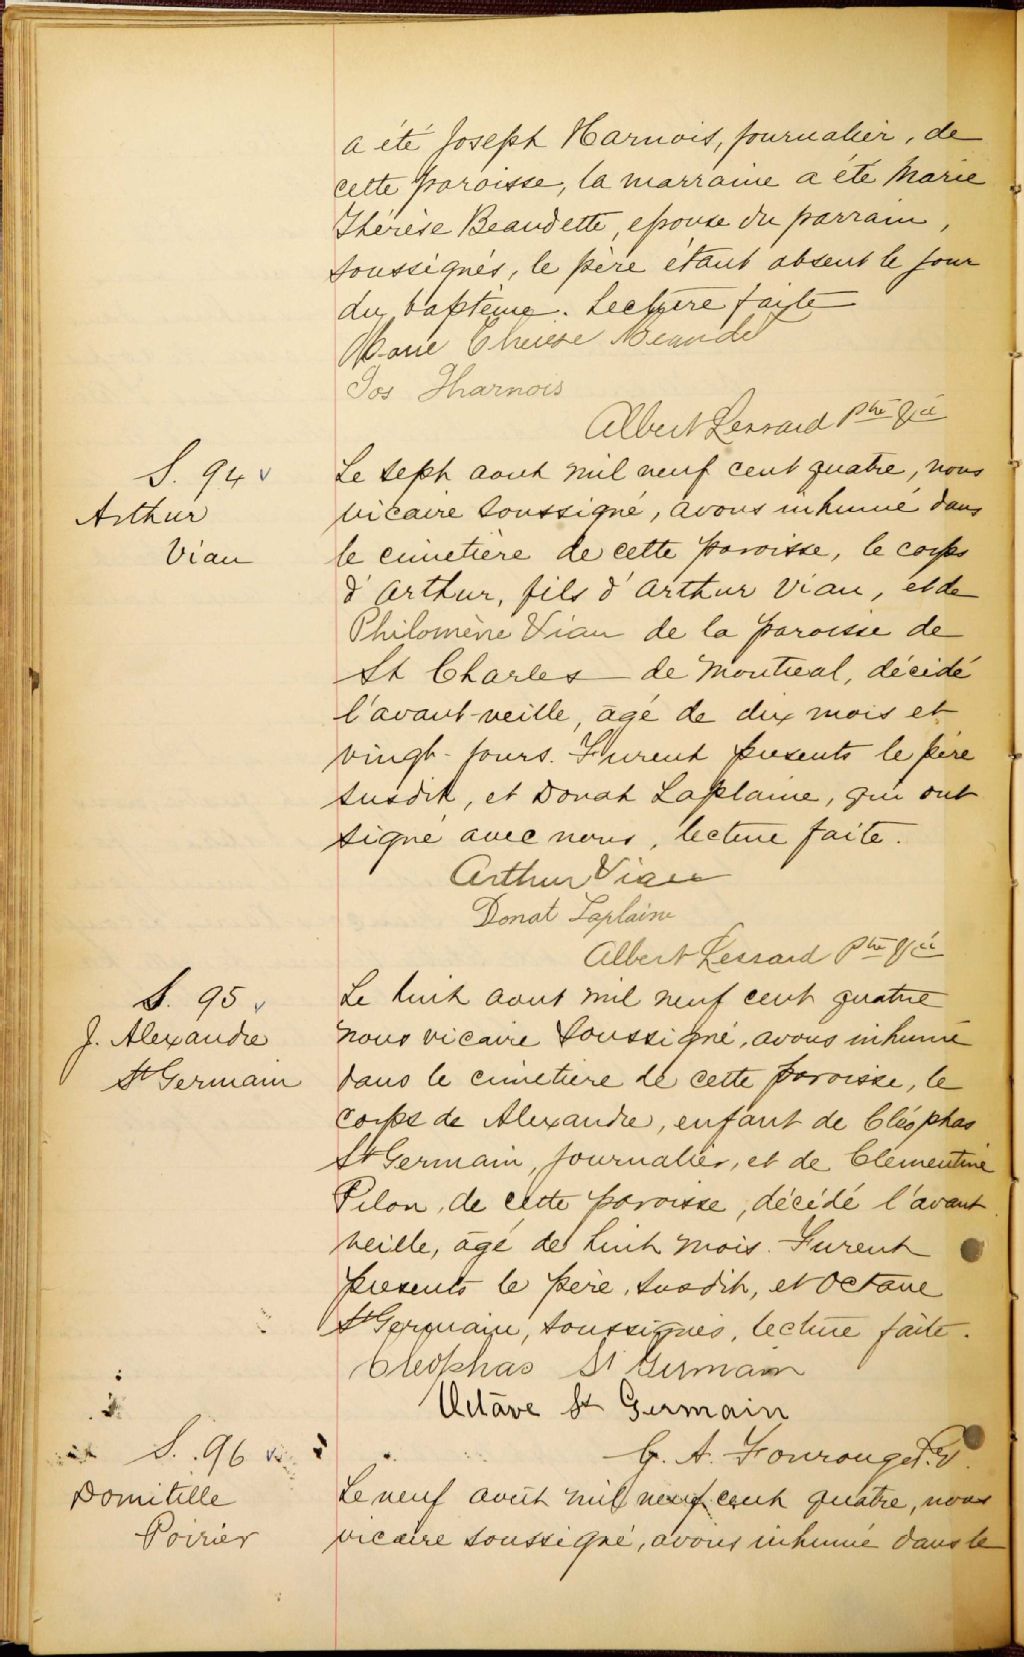 a été Joseph Harnois, journalier, de
cette paroisse, la marraine a été Marie
Thérèse Beaudette, epouse du parrain,
soussignés, le père étant absent le jour
du baptême. Lecture faite
Marie Therese Beaudet
Jos Harnois
Albert Lessard Ptre Vic
S. 94
Arthur
Viau
Le sept aout mil neuf cent quatre, nous
vicaire soussigné, avons inhumé dans
le cimetière de cette paroisse, le corps
d'Arthur, fils d'Arthur Viau, et de
Philomène Viau de la paroisse de
St Charles de Montreal, décidé
l'avant-veille, âgé de dix mois et
vingt-jours. Furent presents le père
susdit, et Donat Laplaine, qui ont
signé avec nous, lecture faite.
Arthur Viau
Donat Laplaine
Albert Lessard Ptre Vic
S. 95
J. Alexandre
St Germain
Le huit aout mil neuf cent quatre
nous vicaire soussigné, avons inhumé
dans le cimetière de cette paroisse, le
corps de Alexandre, enfant de Cléophas
St Germain, journalier, et de Clementine
Pilon, de cette paroisse, décédé l'avant
veille, âgé de huit mois. Furent
presents le père, susdit, et Octave
St Germain, soussignés, lecture faite.
Cleophas St Germain
Octave St Germain
G. A.
S. 96
Domitille
Poirier
Le neuf août mil neuf cent quatre, nous
vicaire soussigné, avons inhumé dans le